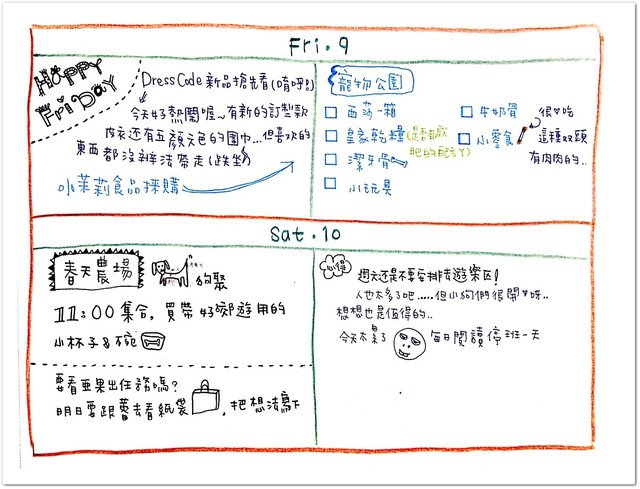 Fri. 9
HAPPY
FRiDAY
Dress Code 新品搶先看(唷呀!)
今天好熱鬧喔~有新的訂製款
內衣還有五顏六色的圍巾...但喜歡的
東西都沒辦法帶走(跌坐)
小茉莉食品採購
寵物公園
西莎一箱
皇家乾糧(是否有減
肥的配方ㄚ)
潔牙骨
小玩具
牛奶骨
小零食
很♡吃
這種双頭
有肉肉的..
Sat. 10
春天農場
狗聚
11:00 集合,買帶好郊遊用的
小杯子&碗
要看亞果出任務嗎?
明日要跟蕾去看紙袋
,把想法寫下
心得
週六還是不要安排去遊樂區!
人也太多了吧.....但小狗們很開♡呀..
想想也是值得的..
今天太累了
每日閱讀停班一天